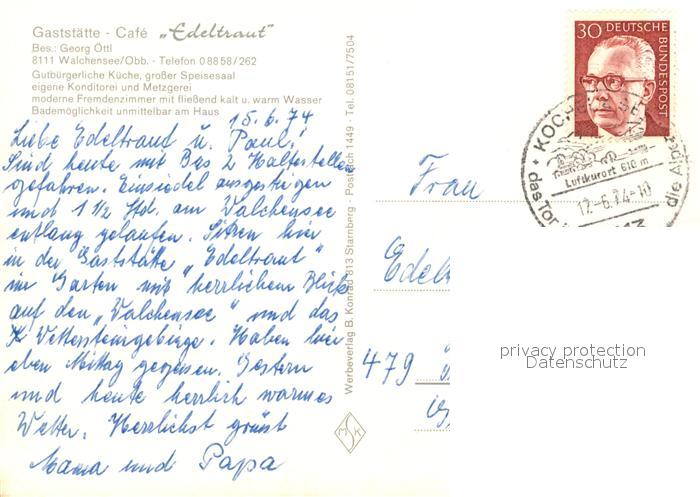 Gaststätte - Café „Edeltraut"
Bes.: Georg Öttl
8111 Walchensee/Obb. - Telefon 0 88 58 / 262
Gutbürgerliche Küche, großer Speisesaal
eigene Konditorei und Metzgerei
moderne Fremdenzimmer mit fließend kalt u. warm Wasser
Bademöglichkeit unmittelbar am Haus
15.6.74
Liebe Edeltraut u. Paul!
Sind heute mit Bus 2 Haltestellen
gefahren. Einsiedel ausgestiegen
und 1 1/2 Std. am Walchensee
entlang gelaufen. Sitzen hier
in der Gaststätte „Edeltraut"
im Garten mit herrlichem Blick
auf den „Walchensee" und das
Wettersteingebirge. Haben hier
eben Mittag gegessen. Gestern
und heute herrlich warmes
Wetter. Herzlichst grüßt
Mama und Papa
Werbeverlag B. Konrad 813 Starnberg · Postfach 1449 · Tel. 08151/7504
MSK
30 DEUTSCHE
BUNDESPOST
KOCHEL
Luftkurort 610 m
17.-6.74-10
das Tor
die
Frau
Edel
479
privacy protection
Datenschutz